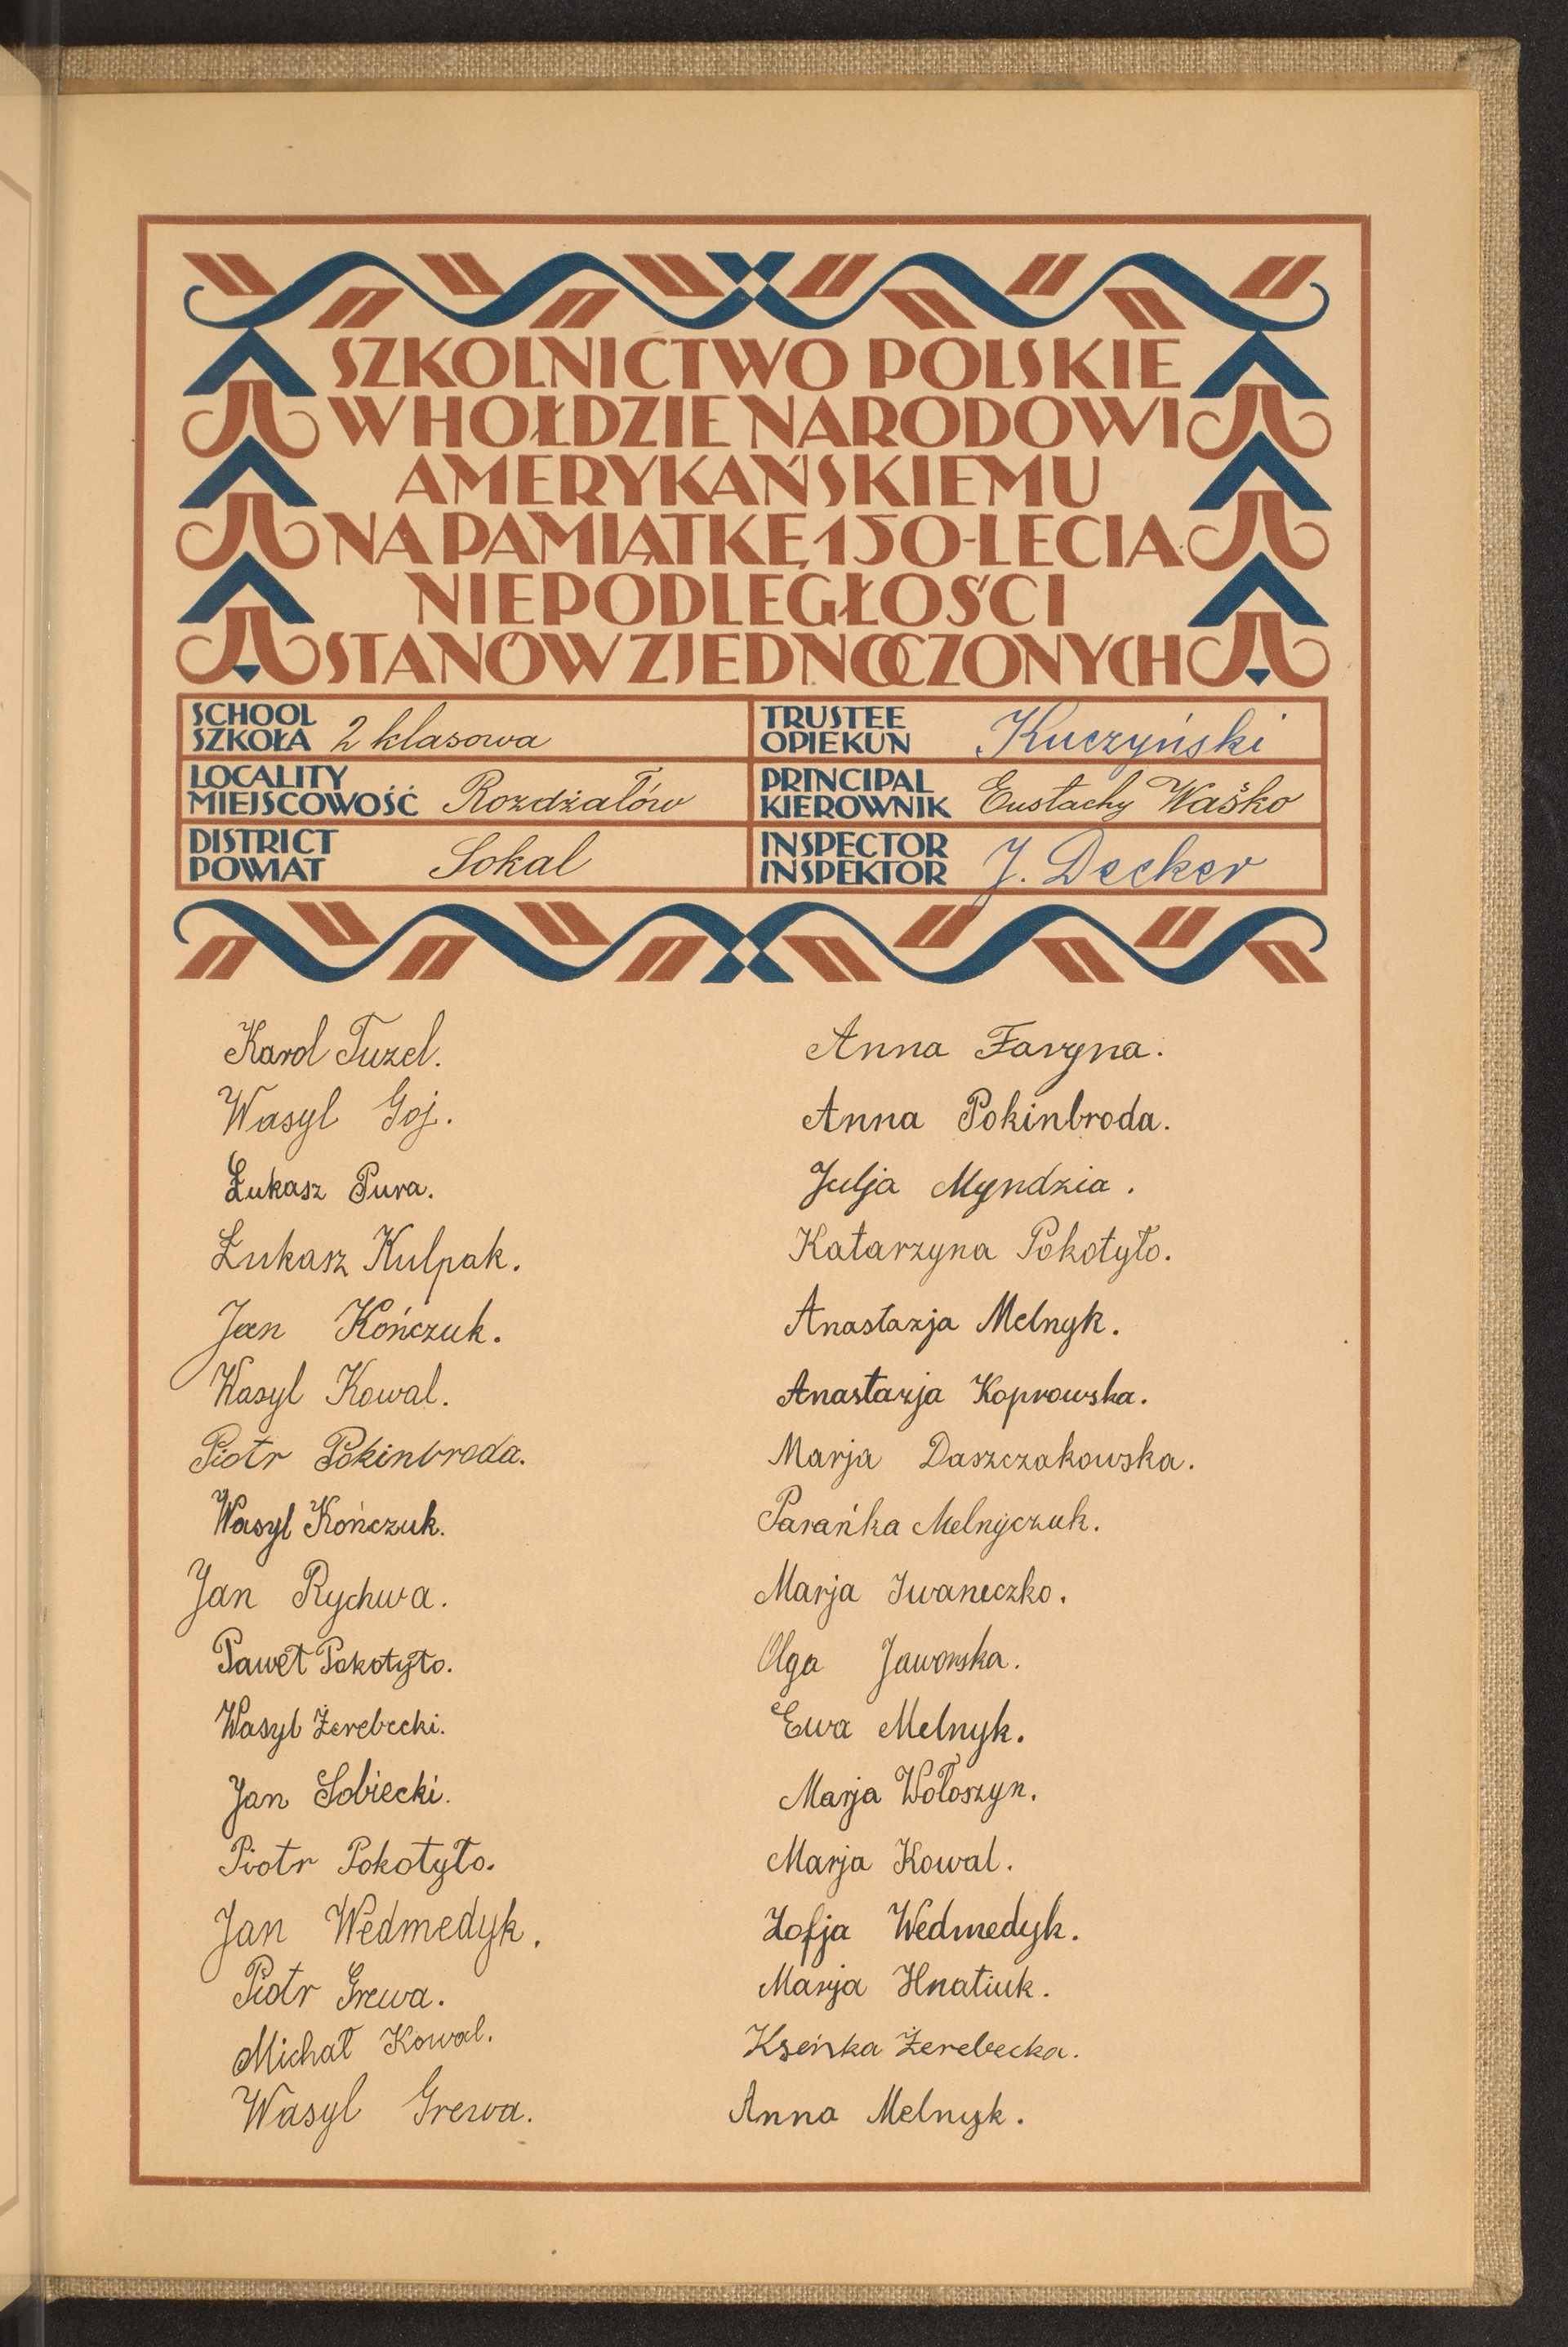 SZKOLNICTWO POLSKIE
W HOŁDZIE NARODOWI
AMERYKAŃSKIEMU
NA PAMIĄTKĘ 150-LECIA
NIEPODLEGŁOŚCI
STANÓW ZJEDNOCZONYCH
SCHOOL
SZKOŁA 2 klasowa
TRUSTEE
OPIEKUN Kuczyński
LOCALITY
MIEJSCOWOŚĆ Rozdżałów
PRINCIPAL
KIEROWNIK Eustachy Waśko
DISTRICT
POWIAT Sokal
INSPECTOR
INSPEKTOR J. Decker
Karol Tuzel.
Wasyl Goj.
Łukasz Pura.
Łukasz Kulpak.
Jan Kończuk.
Wasyl Kowal.
Piotr Pokinbroda.
Wasyl Kończuk.
Jan Rychwa.
Paweł Pokotyło.
Wasyl Żerebecki.
Jan Sobiecki.
Piotr Pokotyło.
Jan Wedmedyk.
Piotr Grewa.
Michał Kowal.
Wasyl Grewa.
Anna Faryna.
Anna Pokinbroda.
Julja Myndzia.
Katarzyna Pokotyło.
Anastazja Melnyk.
Anastazja Koprowska.
Marja Daszczakowska.
Parańka Melnyczuk.
Marja Iwaneczko.
Olga Jaworska.
Ewa Melnyk.
Marja Wołoszyn.
Marja Kowal.
Zofja Wedmedyk.
Marja Hnatiuk.
Kseńka Żerebecka.
Anna Melnyk.